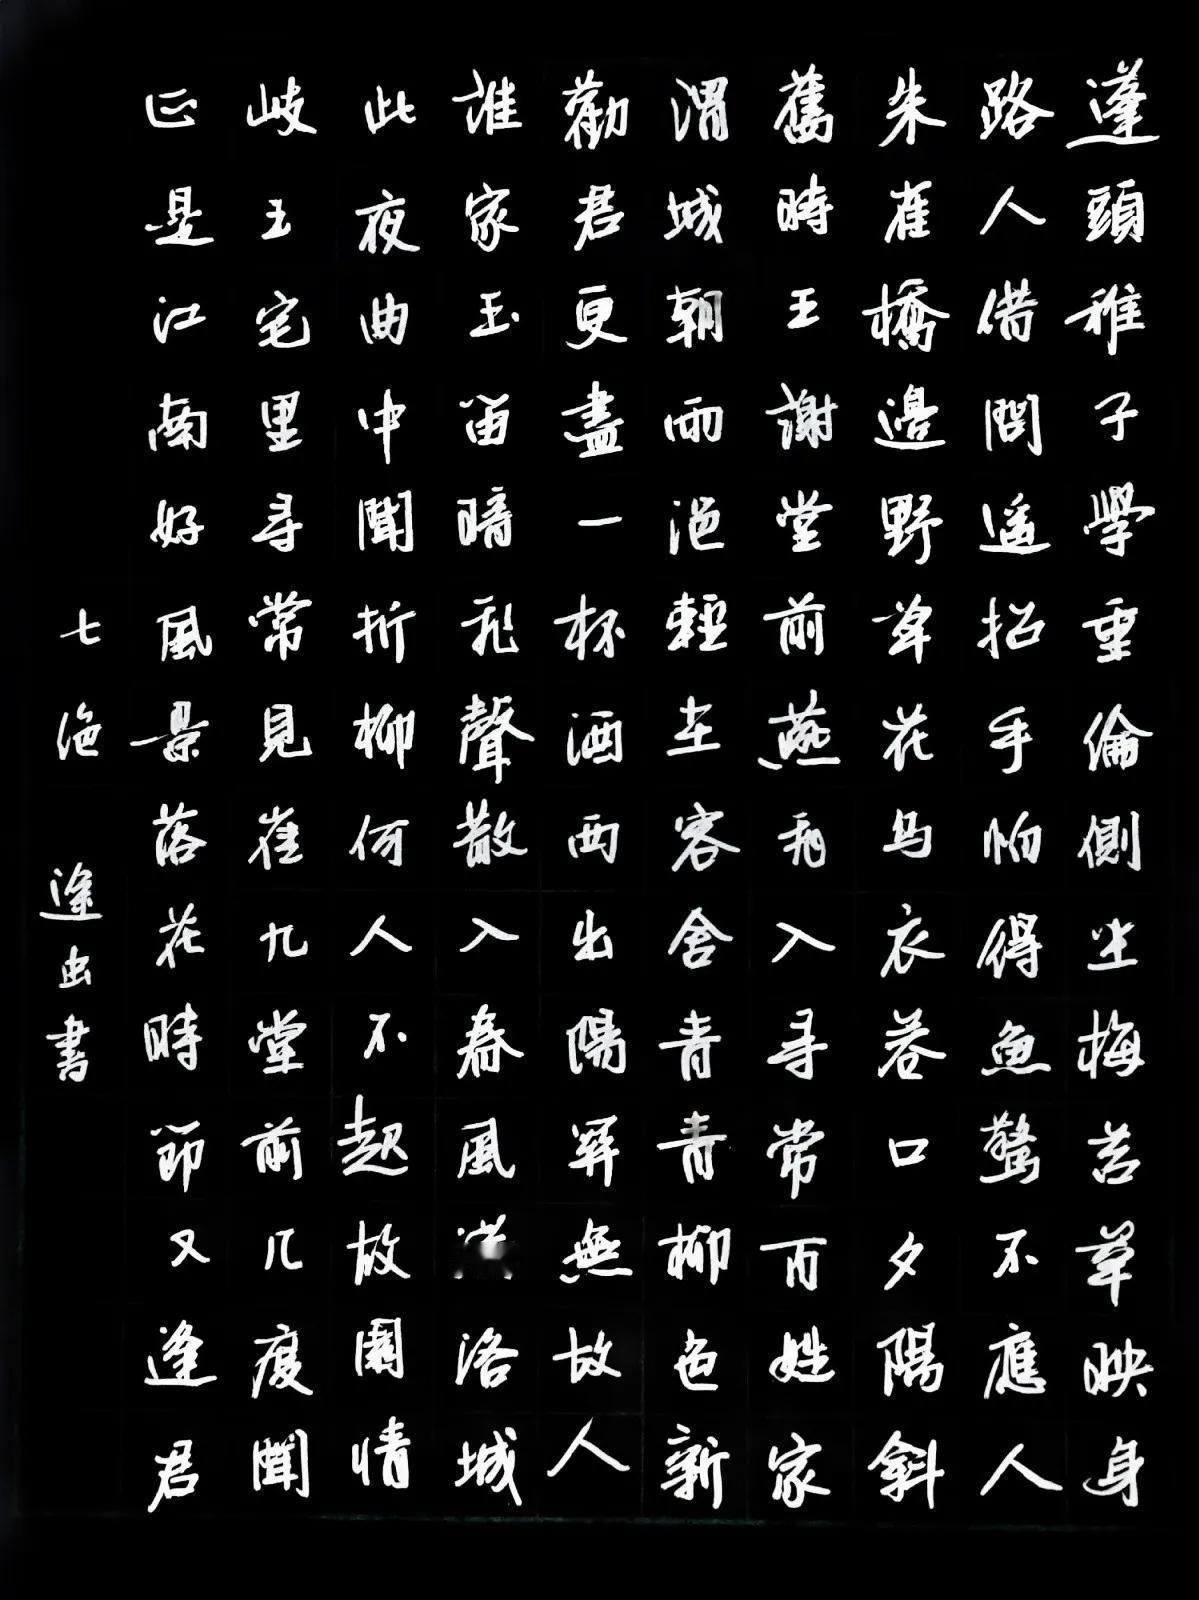 蓬頭稚子學垂倫側坐莓苔草映身
路人借問遥招手怕得魚驚不應人
朱雀橋邊野草花乌衣巷口夕陽斜
舊時王謝堂前燕飛入尋常百姓家
渭城朝雨浥輕尘客舍青青柳色新
勸君更盡一杯酒西出陽関無故人
誰家玉笛暗飛聲散入春風满洛城
此夜曲中聞折柳何人不起故園情
岐王宅里尋常見崔九堂前几度聞
正是江南好風景落花時節又逢君
七絶 逢虫書